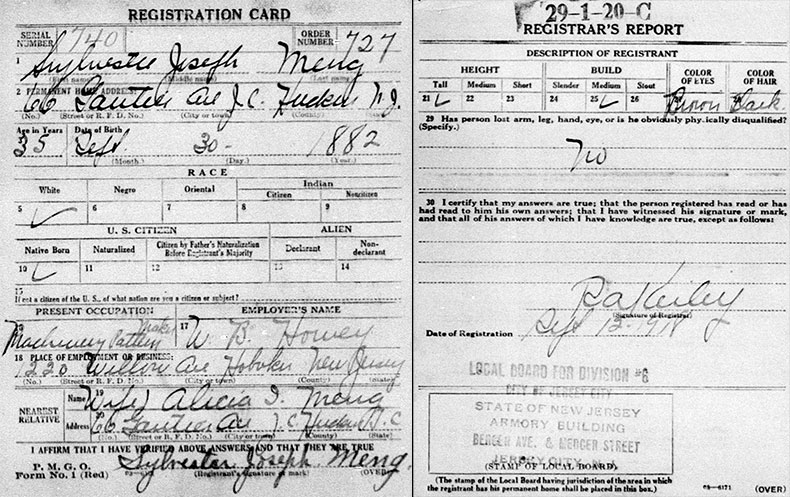 REGISTRATION CARD
SERIAL NUMBER 740 ORDER NUMBER 727
1 Sylvester Joseph Meng
(First name) (Middle name) (Last name)
2 PERMANENT HOME ADDRESS:
66 Gautier Ave J.C. Hudson N.J.
(No.) (Street or R. F. D. No.) (City or town) (County) (State)
Age in Years Date of Birth
35 Sept 30- 1882
(Month.) (Day.) (Year.)
RACE
White Negro Oriental Indian
Citizen Noncitizen
5 ✓ 6 7 8 9
U. S. CITIZEN ALIEN
Native Born Naturalized Citizen by Father's Naturalization Before Registrant's Majority Declarant Non-declarant
10 ✓ 11 12 13 14
15
If not a citizen of the U. S., of what nation are you a citizen or subject?
PRESENT OCCUPATION EMPLOYER'S NAME
16 Machinery Pattern Maker 17 W. B. Howey
18 PLACE OF EMPLOYMENT OR BUSINESS:
1220 Willow Ave Hoboken New Jersey
(No.) (Street or R. F. D. No.) (City or town) (County) (State)
NEAREST RELATIVE Name 19 (Wife) Alicia I. Meng
Address 20 66 Gautier Ave J.C. Hudson
(No.) (Street or R. F. D. No.) (City or town) (County) (State)
I AFFIRM THAT I HAVE VERIFIED ABOVE ANSWERS AND THAT THEY ARE TRUE
P. M. G. O.
Form No. 1 (Red) Sylvester Joseph Meng.
(Registrant's signature or mark) (OVER)
29-1-20-C
REGISTRAR'S REPORT
DESCRIPTION OF REGISTRANT
HEIGHT BUILD COLOR OF EYES COLOR OF HAIR
Tall Medium Short Slender Medium Stout
21 ✓ 22 23 24 25 ✓ 26 Brown Black
29 Has person lost arm, leg, hand, eye, or is he obviously physically disqualified?
(Specify.)
No
30 I certify that my answers are true; that the person registered has read or has
had read to him his own answers; that I have witnessed his signature or mark,
and that all of his answers of which I have knowledge are true, except as follows:
(Signature of Registrar)
Date of Registration Sept 12-1918
LOCAL BOARD FOR DIVISION #6
CITY OF JERSEY CITY
STATE OF NEW JERSEY
ARMORY BUILDING
BERGEN AVE. & MERCER STREET
JERSEY CITY, N.J.
(STAMP OF LOCAL BOARD)
(The stamp of the Local Board having jurisdiction of the area in which
the registrant has his permanent home shall be placed in this box.)
03-6171 (OVER)